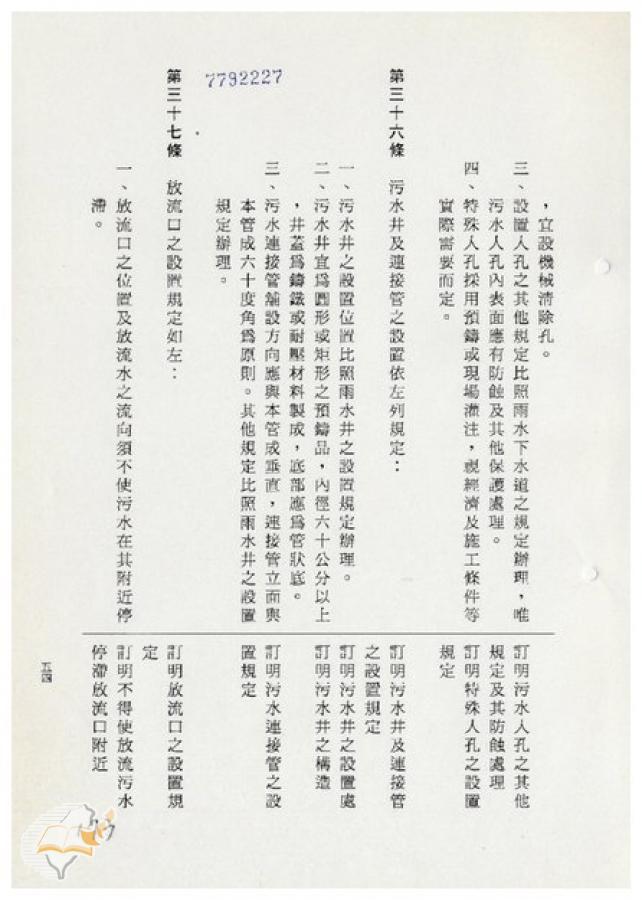 7792227
，宜設機械清除孔。
三、設置人孔之其他規定比照雨水下水道之規定辦理，唯
污水人孔內表面應有防蝕及其他保護處理。
四、特殊人孔採用預鑄或現場灌注，視經濟及施工條件等
實際需要而定。
第三十六條　污水井及連接管之設置依左列規定：
一、污水井之設置位置比照雨水井之設置規定辦理。
二、污水井宜為圓形或矩形之預鑄品，內徑六十公分以上
，井蓋為鑄鐵或耐壓材料製成，底部應為管狀底。
三、污水連接管舖設方向應與本管成垂直，連接管立面與
本管成六十度角為原則。其他規定比照雨水井之設置
規定辦理。
第三十七條　放流口之設置規定如左：
一、放流口之位置及放流水之流向須不使污水在其附近停
滯。
訂明污水人孔之其他
規定及其防蝕處理
訂明特殊人孔之設置
規定
訂明污水井及連接管
之設置規定
訂明污水井之設置處
訂明污水井之構造
訂明污水連接管之設
置規定
訂明放流口之設置規
定
訂明不得使放流污水
停滯放流口附近
五四